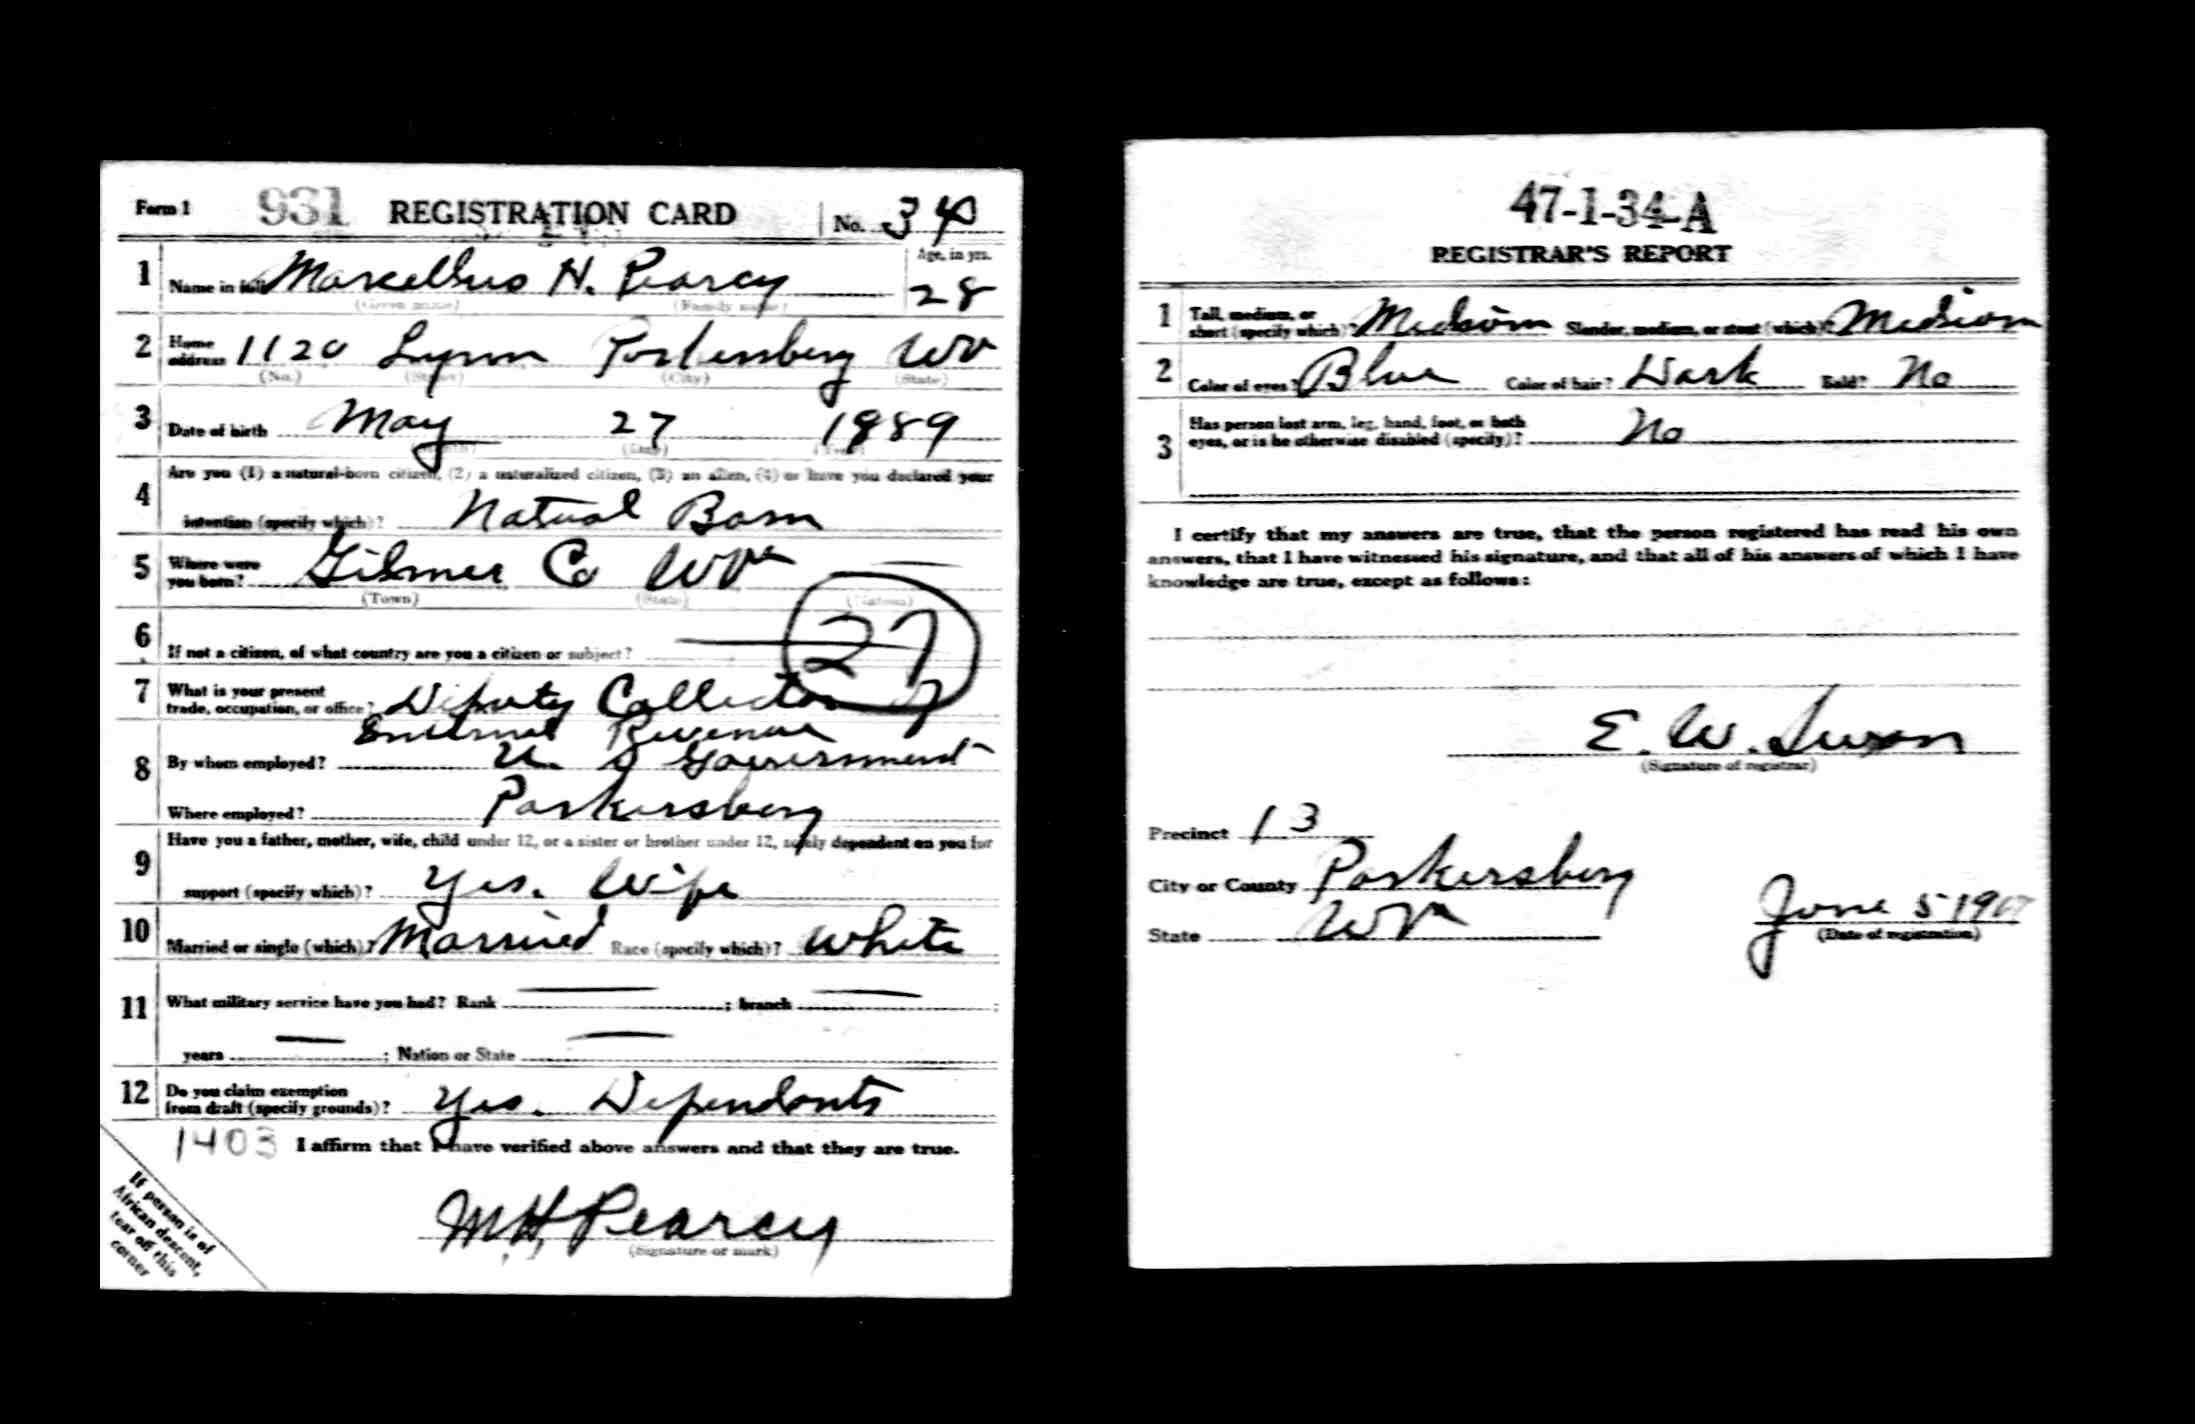 Form 1 931 REGISTRATION CARD No. 34
1 Name in full Marcellus H. Pearcy Age, in yrs. 28
(Given name) (Family name)
2 Home address 1120 Lynn Parkersburg WV
(No.) (Street) (City) (State)
3 Date of birth May 27 1889
(Month) (Day) (Year)
4 Are you (1) a natural-born citizen, (2) a naturalized citizen, (3) an alien, (4) or have you declared your
intention (specify which)? Natual Born
5 Where were you born? Gilmer Co WVa
(Town) (State) (Nation)
27
6 If not a citizen, of what country are you a citizen or subject?
7 What is your present trade, occupation, or office? Deputy Collector of
Internal Revenue
8 By whom employed? U. S Government
Where employed? Parkersburg
9 Have you a father, mother, wife, child under 12, or a sister or brother under 12, solely dependent on you for
support (specify which)? Yes. Wife
10 Married or single (which)? Married Race (specify which)? White
11 What military service have you had? Rank ; branch ;
years ; Nation or State
12 Do you claim exemption from draft (specify grounds)? Yes. Dependants
1403 I affirm that I have verified above answers and that they are true.
M.H. Pearcy
(Signature or mark)
If person is of
African descent,
tear off this
corner
47-1-34-A
REGISTRAR'S REPORT
1 Tall, medium, or short (specify which)? Medium Slender, medium, or stout (which)? Medium
2 Color of eyes? Blue Color of hair? Dark Bald? No
3 Has person lost arm, leg, hand, foot, or both
eyes, or is he otherwise disabled (specify)? No
I certify that my answers are true, that the person registered has read his own
answers, that I have witnessed his signature, and that all of his answers of which I have
knowledge are true, except as follows:
E. W. Swan
(Signature of registrar)
Precinct 13
City or County Parkersburg
State WVa June 5 1917
(Date of registration)